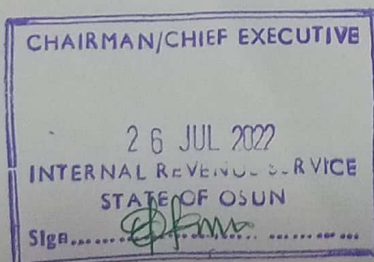 CHAIRMAN/CHIEF EXECUTIVE
26 JUL 2022
INTERNAL REVENUE SERVICE
STATE OF OSUN
Sign..................